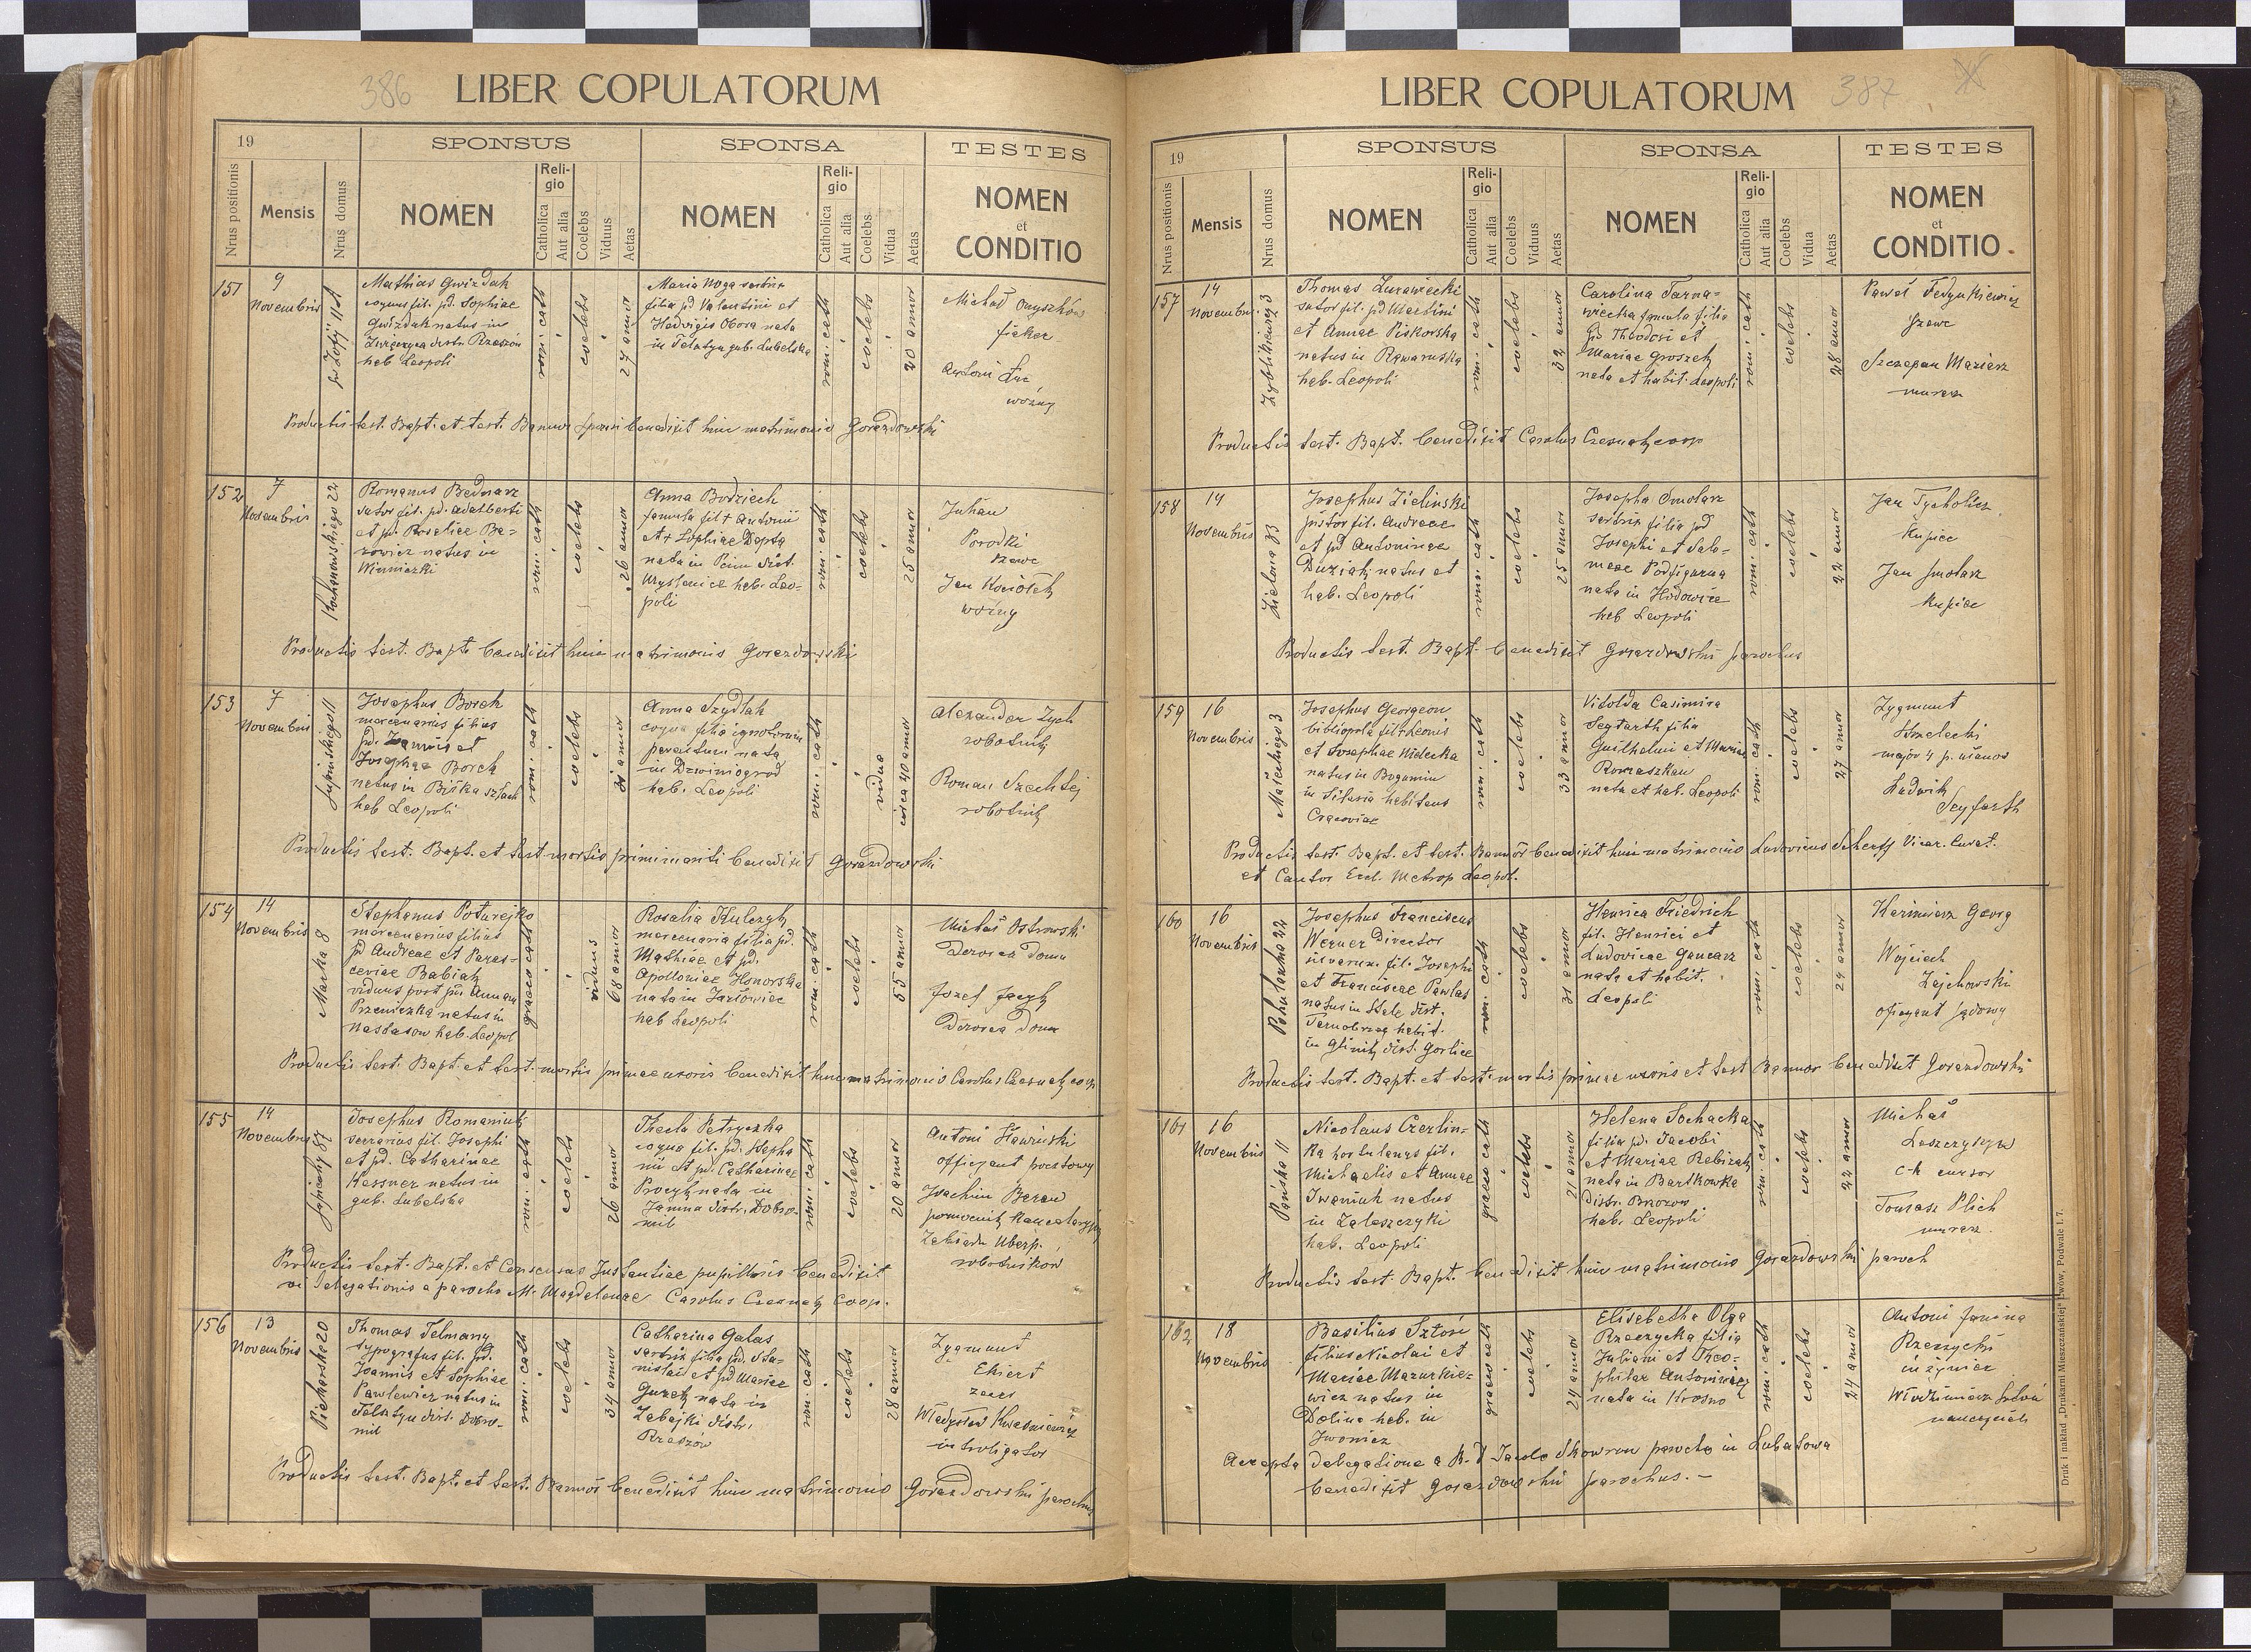 386 LIBER COPULATORUM
19
SPONSUS
SPONSA
TESTES
Nrus positionis
Mensis
Nrus domus
NOMEN
Religio
Catholica
Aut alia
Coelebs
Viduus
Aetas
NOMEN
Religio
Catholica
Aut alia
Coelebs
Vidua
Aetas
NOMEN
et
CONDITIO
151
9
Novembris
Mathias Gwizdak
coquus fil. pd. Sophiae
Gwizdak natus in
distr. Rzeszów
hab Leopoli
rom. cath
coelebs
27 annor
Maria Noga sartrix
filia pd Valentini et
Hedvigis Obora nata
in Telatyn gub. Lubelska
rom. cath
coelebs
20 annor
Michał Onyszków
fieker
Antoni Łuc
woźny
Productis test. Bapt. et test. Bannor sponsi benedixit huic matrimonio Gorazdowski
152
7
Novembris
Kochanowskiego 22
Romanus Bednarz
sutor fil. pd. Adalberti
et pd. Rosaliae Ba=
zowicz natus in
Winniczki
rom. cath
coelebs
26 annor
Anna Bodziech
famula fil + Antonii
et + Sophiae Depta
nata in Pcim dist.
Myslenice hab. Leo=
poli
rom. cath
coelebs
25 annor
Julian
Porodki
szewc
Jan Kościółek
woźny
Productis test. Bapt. benedixit huic matrimonio Gorazdowski
153
7
Novembris
Supinskiego 11
Josephus Borch
mercenarius filius
pd. Joannis et
Josephae Borch
natus in Biłka szlach
hab Leopoli
rom. cath
coelebs
31 annor
Anna Szydłak
coqua filia ignotorum
parentum nata
in Dzwinogrod
hab. Leopoli
rom. cath
vidua
circa 40 annor
Alexander Zych
robotnik
Roman Szechtej
robotnik
Productis test. Bapt. et test mortis primi mariti benedixit Gorazdowski
154
14
Novembris
Marka 8
Stephanus Poturejko
mercenarius filius
pd Andreae et Paras=
ceviae Babiak
viduus post pm Annam
Przeniczka natus in
Nastasow hab. Leopol
graeco cath
viduus
68 annor
Rosalia Kulczyk
mercenaria filia pd.
Mathiae et pd.
Apolloniae Honorska
nata in Jazłowiec
hab Leopoli
rom. cath
coelebs
55 annor
Michał Ostrowski
Dozorca domu
Jozef Jacyk
Dozorca domu
Productis test. Bapt. et test. mortis primae uxoris benedixit huic matrimonio Carolus Czesnak coop
155
14
Novembris
Josephus Romaniuk
serrarius fil. Josephi
et pd. Catharinae
Kessner natus in
gub. Lubelska
rom. cath
coelebs
26 annor
Thecla Petryszka
coqua fil. pd. Stepha
nii et pd. Catharinae
Procyk nata in
Jamna distr. Dobro=
mil
rom. cath
coelebs
20 annor
Antoni Hawinski
officjant pocztowy
Joachim Baran
pomocnik kancelaryjny
Zakładu Ubezp.
robotników
Productis test. Bapt. et Consensus Instantiae pupillaris benedixit
vi Delegationis a parocho M. Magdalenae Carolus Czesnak Coop.
156
13
Novembris
Piekarska 20
Thomas Telmany
typografus fil. pd.
Joannis et Sophiae
Pawlewicz natus in
Felsztyn dist. Dobro=
mil
rom. cath
coelebs
34 annor
Catharina Galas
sartrix filia pd. Sta=
nislai et pd Mariae
Guzek nata in
Zabajki distr.
Rzeszów
rom. cath
coelebs
28 annor
Zygmunt
Ekiert
zecer
Władysław Kwaśniewicz
introligator
Productis test. Bapt. et test. Bannor benedixit huic matrimonio Gorazdowski parochus
LIBER COPULATORUM 387
19
SPONSUS
SPONSA
TESTES
Nrus positionis
Mensis
Nrus domus
NOMEN
Religio
Catholica
Aut alia
Coelebs
Viduus
Aetas
NOMEN
Religio
Catholica
Aut alia
Coelebs
Vidua
Aetas
NOMEN
et
CONDITIO
157
14
Novembris
Zyblikiewicz 3
Thomas Zurawiecki
sutor fil. pd Martini
et Annae Piskorska
natus in Rawa ruska
hab. Leopoli
rom. cath
coelebs
32 annor
Carolina Tarna=
wiecka famula filia
pd Theodosi et
Mariae Groszek
nata et habit. Leopoli
rom. cath
coelebs
28 annor
Paweł Fedynkiewicz
szewc
Szczepan Maziarz
murarz
Productis test. Bapt. benedixit Carolus Czesnak coop
158
14
Novembris
Zielona 33
Josephus Zielinski
pistor fil. Andreae
et pd Antoninae
Duziak natus et
hab. Leopoli
rom. cath
coelebs
25 annor
Josepha Smolarz
sartrix filia pd
Josephi et Salo=
meae Podfigurna
nata in Hodowice
hab Leopoli
rom. cath
coelebs
22 annor
Jan Tycholicz
Kupiec
Jan Smolarz
Kupiec
Productis test. Bapt. benedixit Gorazdowski parochus
159
16
Novembris
Małeckiego 3
Josephus Georgeon
bibliopola fil + Leonis
et Josephae Widecka
natus in Bogumin
in Silesia habitans
Cracoviae
rom. cath
coelebs
33 annor
Vitolda Casimira
Seyfarth filia
Guilhelmi et Mariae
Romaszkan
nata et hab. Leopoli
rom. cath
coelebs
27 annor
Zygmunt
Strzelecki
major 4 p. ułanów
Ludwik
Seyfarth
Productis test. Bapt. et test. Bannor benedixit huic matrimonio Ludovicus Scherff Vicar. Curat.
et Cantor Eccl. Metrop Leopol.
160
16
Novembris
Pohulanka 22
Josephus Franciscus
Werner Director
silvarum fil. Josephi
et Franciscae Pawlas
natus in Stale dist.
Tarnobrzeg habit.
in Glinik dist. Gorlice
rom. cath
coelebs
31 annor
Henrica Friedrich
fil. Henrici et
Ludovicae Gancarz
nata et habit.
Leopoli
rom. cath
coelebs
24 annor
Kazimierz Georg
Wojciech
Zajchowski
oficyant sądowy
Productis test. Bapt. et test. mortis primae uxoris et test Bannor benedixit Gorazdowski
161
16
Novembris
Pańska 11
Nicolaus Czerlin=
ka hortulanus fil.
Michaelis et Annae
Iwaniuk natus
in Zaleszczyki
hab. Leopoli
graeco cath
coelebs
21 annor
Helena Sochacka
filia pd. Jacobi
et Mariae Rebizak
nata in Bartkowka
distr. Brzozow
hab. Leopoli
rom. cath
coelebs
22 annor
Michał
Leszczyszyn
c-k cursor
Tomasz Plich
murarz.
Productis test. Bapt. benedixit huic matrimonio Gorazdowski paroch
162
18
Novembris
Basilius Sztoń
filius Nicolai et
Mariae Mazurkie=
wicz natus in
Dolina hab. in
Iwonicz
graeco cath
coelebs
24 annor
Elisabetha Olga
Rzeczycka filia
Juliani et Theo=
philae Antoniewicz
nata in Krosno
rom. cath
coelebs
24 annor
Antoni Janina
Rzeczycki
inżynier
Włodzimierz Sztoń
nauczyciel
Accepta delegatione a R. D Jacobo Skowron parocho in Lubatowa
benedixit Gorazdowski parochus. —
Druk i nakład „Drukarni Mieszczańskiej" Lwów, Podwale l. 7.